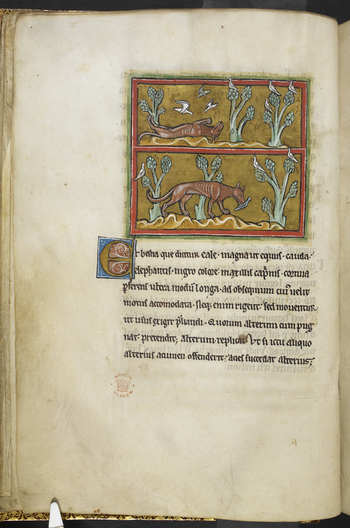 Est bestia que dicitur eale · magna ut equus · cauda
elephantis · nigro colore · maxillis caprinis · cornua
preferens ultra modum longa · ad obsequium cui velit
motus accomodata · Neq; enim rigent · sed moventur
ut usus exigit preliandi · Quorum alterum cum pug
nat pretendit · alterum replicat · Vt si ictu aliquo
alterius acumen offenderit · acies succedat alterius ·